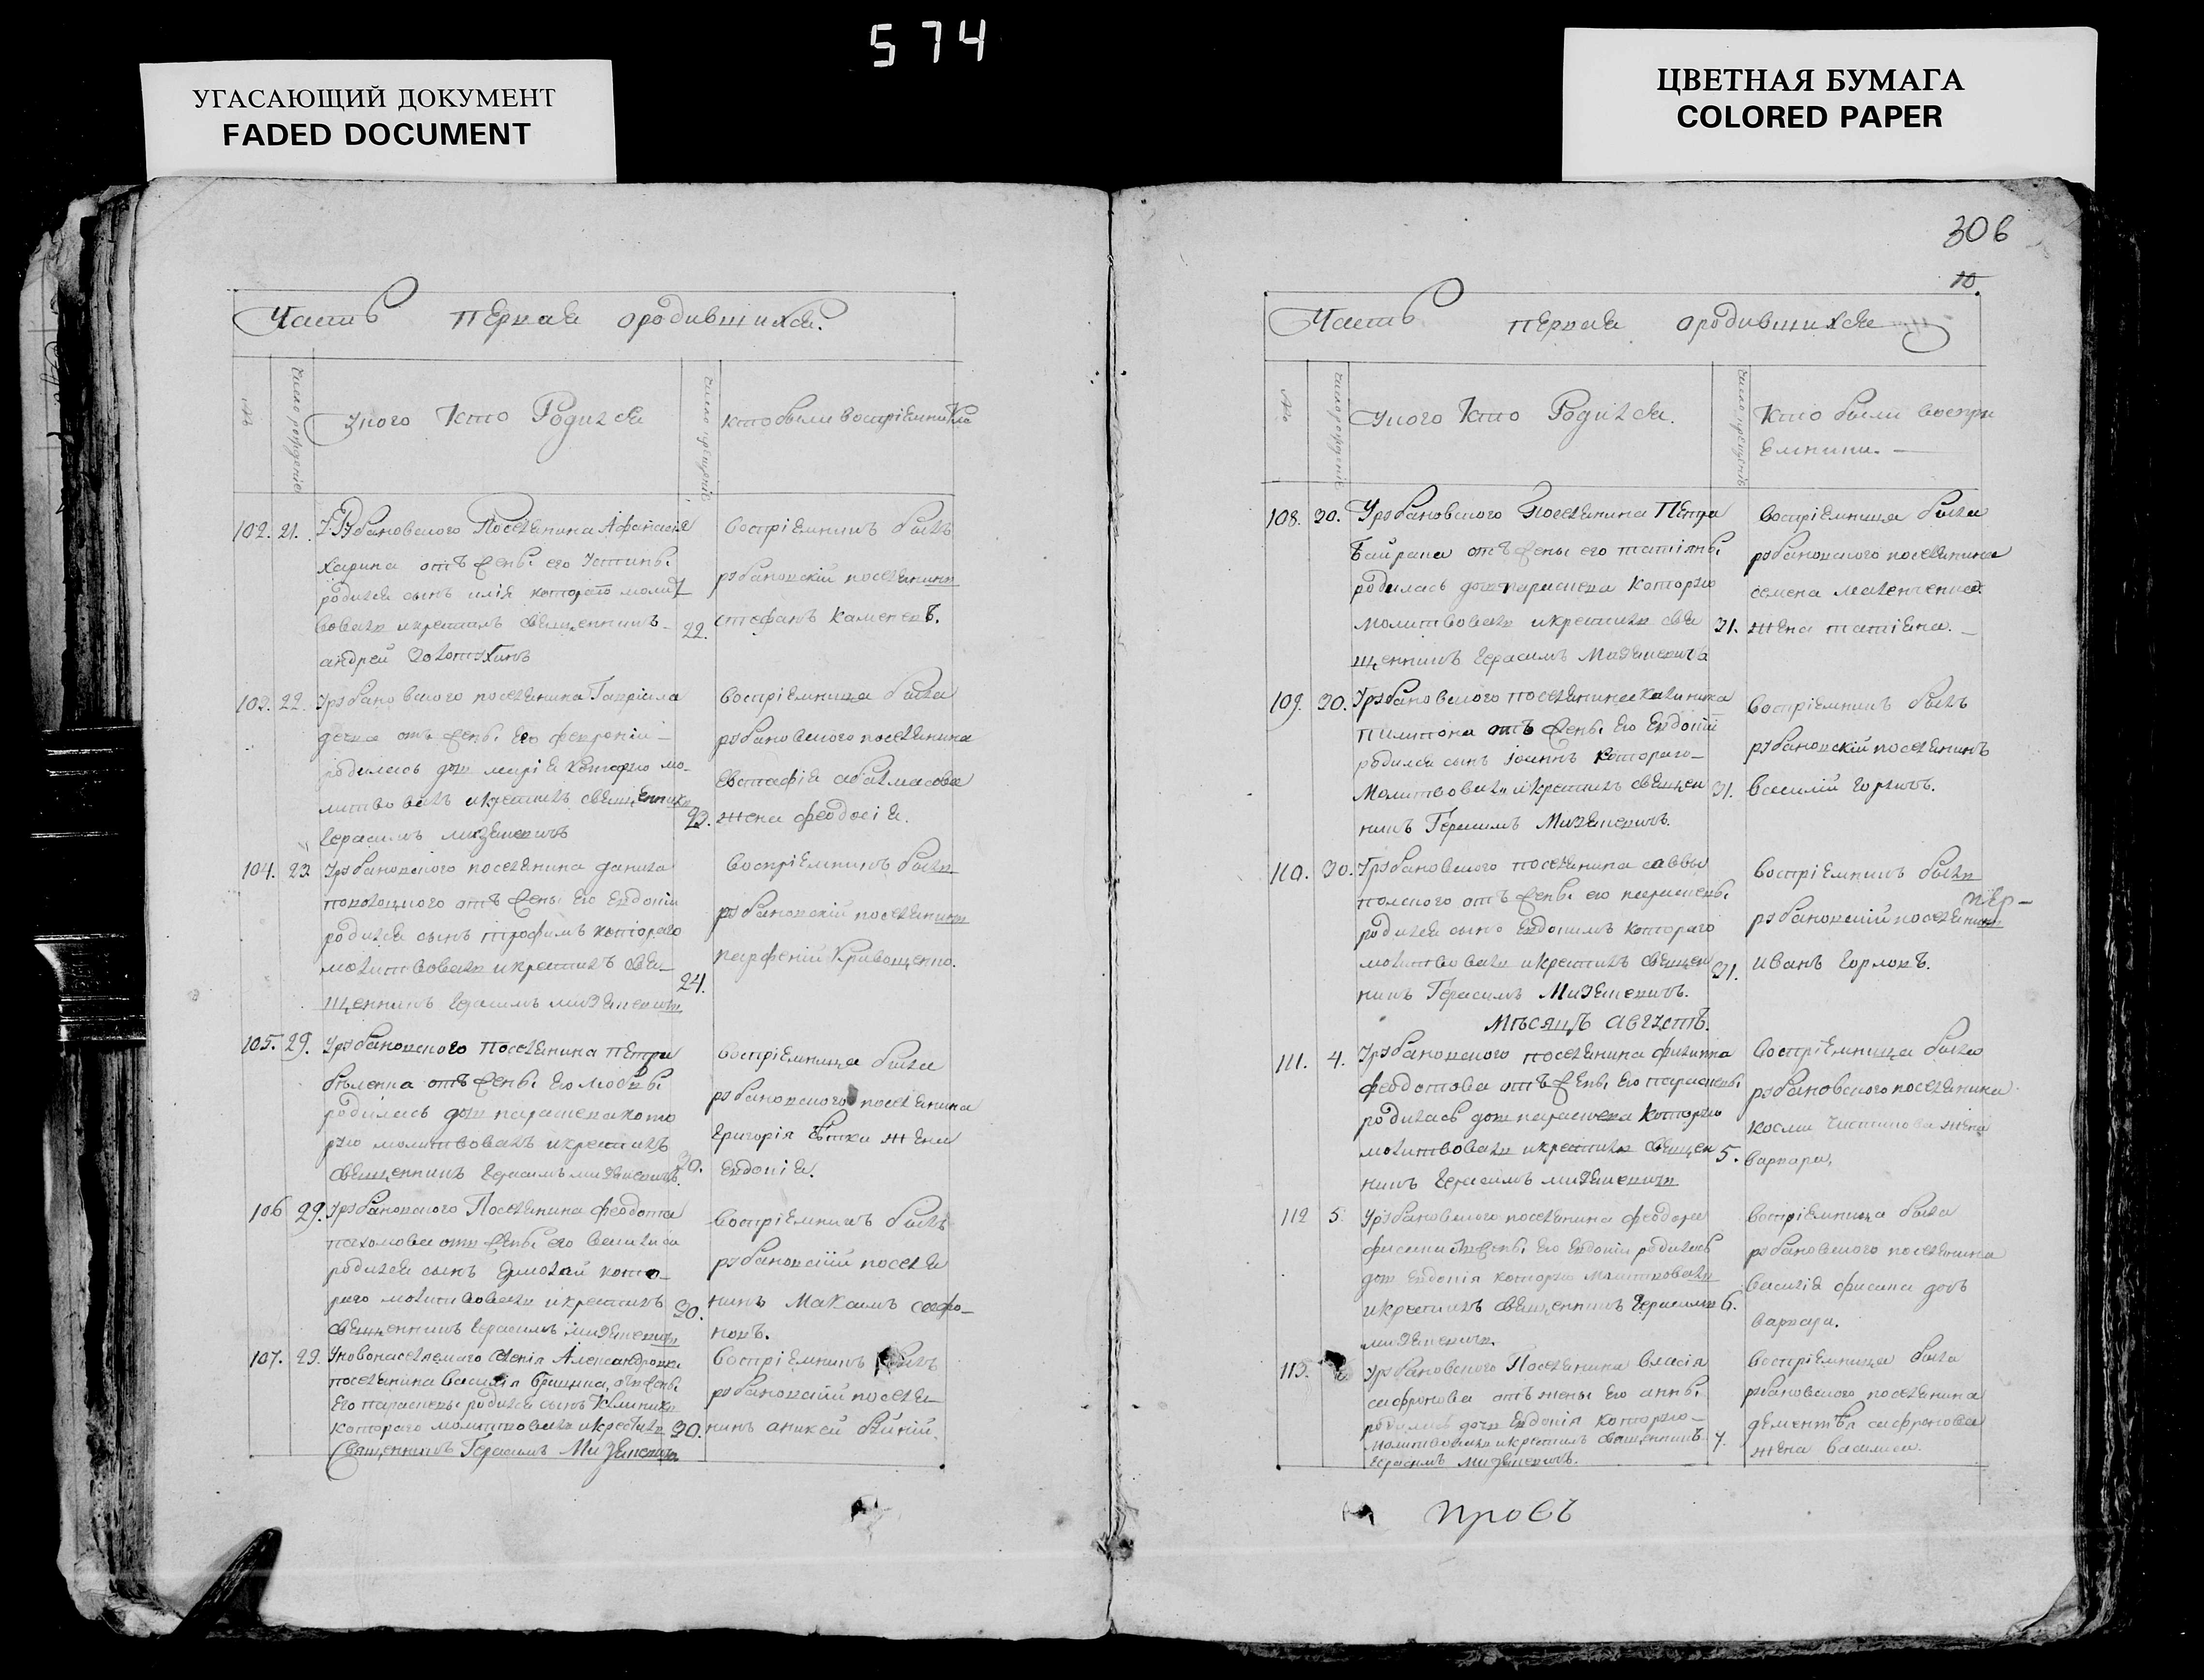 574
УГАСАЮЩИЙ ДОКУМЕНТ
FADED DOCUMENT
ЦВЕТНАЯ БУМАГА
COLORED PAPER
Часть первая о родившихся.
№
число рожденія
У кого кто родился
число крещенія
кто были воспріемники
102. 21.
У Рубановского поселянина Афанасія
Харина отъ жены его Устины
родился сынъ илія которого молит
вовалъ и крестилъ священникъ
андрей Золотухинъ
22.
воспріемникъ былъ
рубановскій поселянинъ
стефанъ каменевъ.
103. 22.
У рубановского поселянина Гавріила
отъ жены его февроніи
родилась дочь марія которую мо-
литвовалъ и крестилъ священникъ
герасимъ
23.
воспріемница была
рубановского поселянина
евстафія
жена феодосія.
104. 23
У рубановского поселянина данила
отъ жены его евдокіи
родился сынъ трофимъ которого
молитвовалъ и крестилъ свя-
щенникъ герасимъ
24.
воспріемникъ былъ
рубановскій поселянинъ
парфеній Кривошенко.
105. 29.
У рубановского поселянина петра
отъ жены его любвы
родилась дочь параскева кото
рую молитвовалъ и крестилъ
священникъ герасимъ
30.
воспріемница была
рубановского поселянина
григорія жена
евдокія.
106 29.
У рубановского Поселянина феодота
пахомова отъ жены его василиса
родился сынъ ермолай кото-
раго молитвовалъ и крестилъ
священникъ герасимъ
30.
воспріемникъ былъ
рубановскій поселя
нинъ Максимъ сафро-
новъ.
107. 29.
У новонаселяемаго селенія Александровки
поселянина василія отъ жены
его параскевы родился сынъ
котораго молитвовалъ и крестилъ
Священникъ Герасимъ
30.
воспріемникъ былъ
рубановскій поселя-
нинъ
306
10.
Часть первая о родившихся
№
число рожденія
У кого кто родился.
число крещенія
Кто были воспрі
емники.
108. 30.
У рубановского поселянина Петра
Байрака отъ жены его татіяны
родилась дочь параскева которую
молитвовалъ и крестилъ свя
щенникъ герасимъ
31.
воспріемница была
рубановского поселянина
семена
жена татіяна.
109. 30.
У рубановского поселянина калиника
пилипона отъ жены его Евдокіи
родился сынъ іоаннъ котораго
Молитвовалъ и крестилъ священ
никъ Герасимъ
31.
воспріемникъ былъ
рубановскій поселянинъ
василій
110. 30.
У рубановского поселянина саввы
отъ жены его параскевы
родился сынъ евдокимъ котораго
молитвовалъ и крестилъ священ
никъ Герасимъ
31.
воспріемникъ былъ
рубановскій поселянинъ
иванъ горловъ.
Мѣсяцъ августъ.
111. 4.
У рубановского поселянина филиппа
феодотова отъ жены его параскевы
родилась дочь параскева которую
молитвовалъ и крестилъ священ
никъ герасимъ
5.
воспріемница была
рубановского поселянина
косми жена
варвара.
112 5.
У рубановского поселянина феодора
фисана отъ жены его евдокіи родилась
дочь евдокія которую молитвовалъ
и крестилъ священникъ герасимъ
6.
воспріемница была
рубановского поселянина
василія фисана дочь
варвара.
113.
У рубановского Поселянина власія
сафронова отъ жены его анны
родилась дочь евдокія которую
молитвовалъ и крестилъ священникъ
герасимъ
7.
воспріемница была
рубановского поселянина
дементія сафронова
жена василиса.